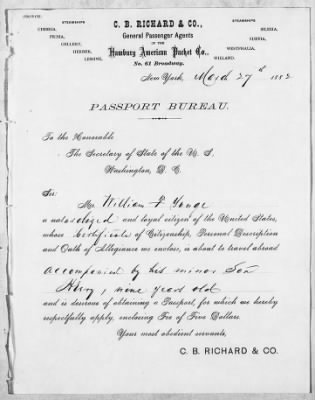 STEAMSHIPS
CIMBRIA,
FRISIA,
GELLERT,
HERDER,
LESSING,
C. B. RICHARD & CO.,
General Passenger Agents
OF THE
Hamburg American Packet Co.,
No. 61 Broadway.
STEAMSHIPS
SILESIA,
SUEVIA,
WESTPHALIA,
WIELAND.
New York, March 27th 1882
PASSPORT BUREAU.
To the Honorable
The Secretary of State of the U. S.
Washington, D. C.
Sir
Mr. William F.
a naturalized and loyal citizen of the United States,
whose Certificate of Citizenship, Personal Description
and Oath of Allegiance we enclose, is about to travel abroad
accompanied by his minor Son
, nine years old
and is desirous of obtaining a Passport, for which we hereby
respectfully apply, enclosing Fee of Five Dollars.
Your most obedient servants,
C. B. RICHARD & CO.